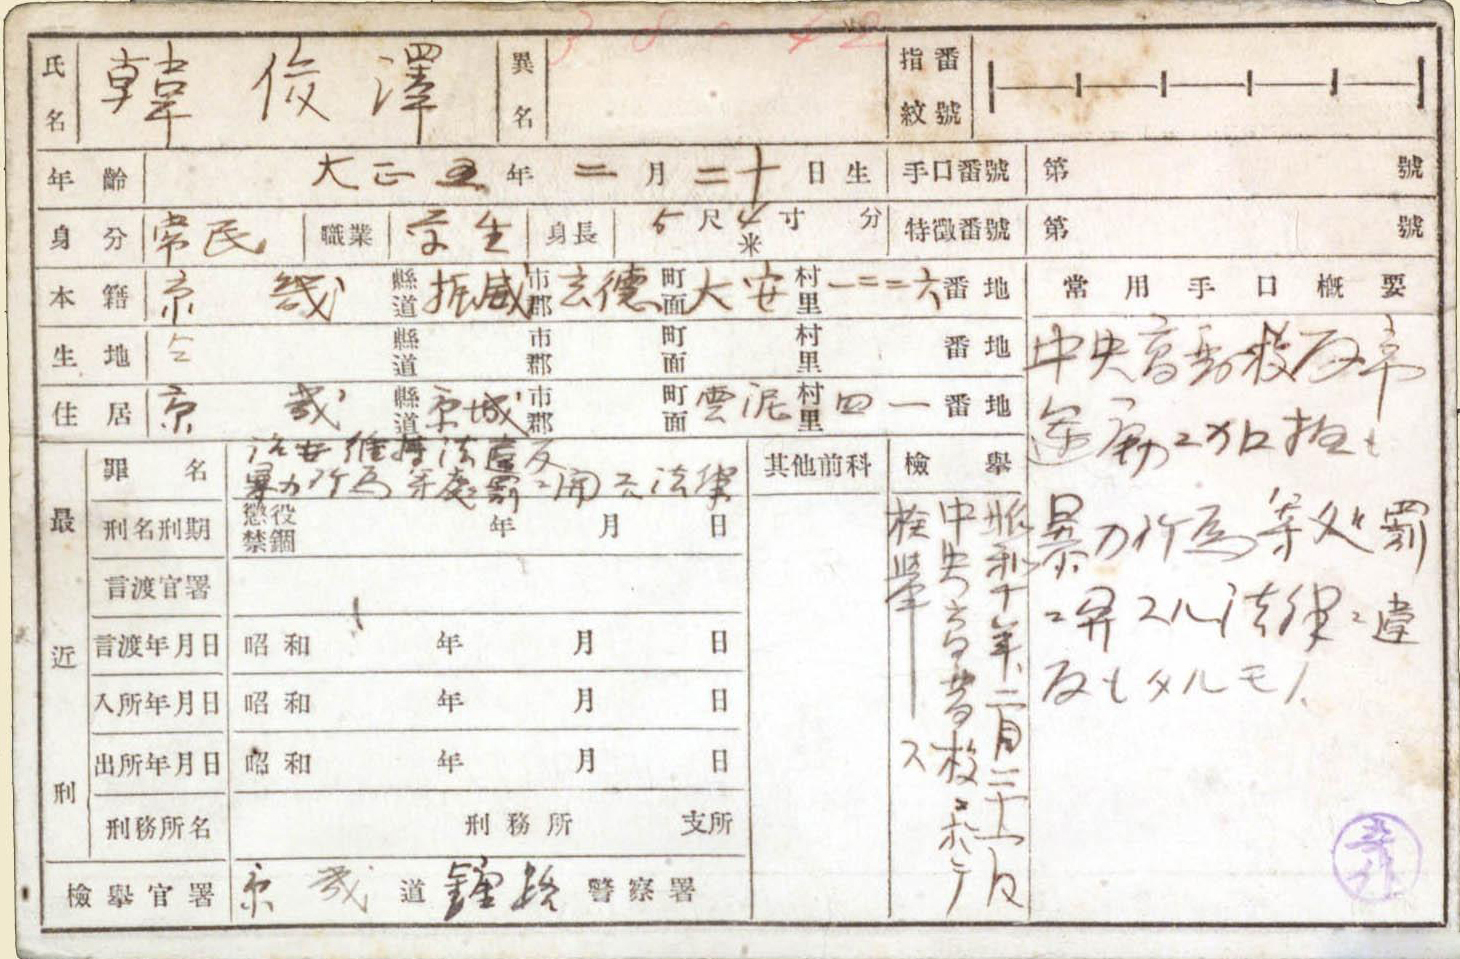 氏名 韓俊澤 異名 指紋番號
年齡 大正五年二月二十日生 手口番號 第 號
身分 常民 職業 学生 身長 5尺4寸 分 米 特徵番號 第 號
本籍 京畿 縣道 振威 市郡 玄德 町面 大安 村里 一二二六 番地
生地 仝 縣道 市郡 町面 村里 番地
住居 京畿 縣道 京城 市郡 町面 雲泥 村里 四一 番地
常用手口概要
中央高普校反帝
運動ニ加担シ
暴力行為等処罰
ニ関スル法律ニ違
反シタルモノ
最近刑
罪名 治安維持法違反
暴力行為等處罰ニ関スル法律
刑名刑期 懲役 禁錮 年 月 日
言渡官署
言渡年月日 昭和 年 月 日
入所年月日 昭和 年 月 日
出所年月日 昭和 年 月 日
刑務所名 刑務所 支所
其他前科
檢擧
昭和十一年二月二十一日
中央高普校ニ於テ
検挙ス
檢擧官署 京畿道 鍾路 警察署